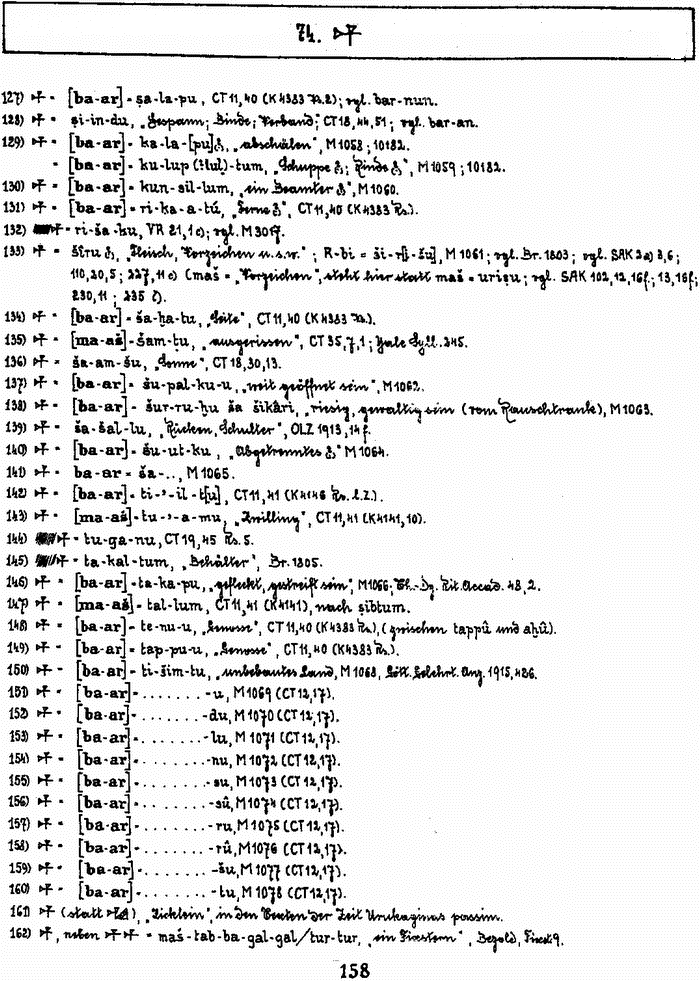 74. 𒈦
127) 𒈦 = [ba-ar] = ṣa-la-pu, CT 11,40 (K 4383 Rs. 2); vgl. bar-nun.
128) 𒈦 = ṣi-in-du, „Gespann; Binde; Verband", CT 18,44,51; vgl. bar-an.
129) 𒈦 = [ba-ar] = ka-la-[pu], „abschälen", M 1058; 10182.
= [ba-ar] = ku-lup (:lul)-tum, „Schuppe; Rinde", M 1059; 10182.
130) 𒈦 = [ba-ar] = kun-sil-lum, „ein Beamter", M 1060.
131) 𒈦 = [ba-ar] = ri-ka-a-tú, „Ferne", CT 11,40 (K 4383 Rs.).
132) 𒈦 = ri-ša-ku, VR 21,1 c); vgl. M 3017.
133) 𒈦 = šîru, „Fleisch, Vorzeichen u.s.w."; R-bi = ši-r[i-šu], M 1061; vgl. Br. 1803; vgl. SAK 2 a) 3,6;
110,20,5; 227,11 c) (maš = „Vorzeichen", steht hier statt maš = uriṣu; vgl. SAK 102,12,16f.; 13,16f.;
230,11; 235
134) 𒈦 = [ba-ar] = ša-ḫa-tu, „Seite", CT 11,40 (K 4383 Rs.).
135) 𒈦 = [ma-aš] = šam-ṭu, „ausgerissen", CT 35,7,1; Yale Syll. 245.
136) 𒈦 = ša-am-šu, „Sonne", CT 18,30,13.
137) 𒈦 = [ba-ar] = šu-pal-ku-u, „weit geöffnet sein", M 1062.
138) 𒈦 = [ba-ar] = šur-ru-ḫu ša šikâri, „riesig, gewaltig sein (vom Rauschtrank), M 1063.
139) 𒈦 = ša-šal-lu, „Rücken, Schulter", OLZ 1913, 14 f.
140) 𒈦 = [ba-ar] = šu-ut-ku, „Abgetrenntes" M 1064.
141) 𒈦 = ba-ar = ša-.., M 1065.
142) 𒈦 = [ba-ar] = ti-ʾ-il-t[u], CT 11,41 (K 4146 Rs. l.Z.).
143) 𒈦 = [ma-aš] = tu-ʾ-a-mu, „Zwilling", CT 11,41 (K 4141,10).
144) 𒈦 = tu-ga-nu, CT 19,45 Rs. 5.
145) 𒈦 = ta-kal-tum, „Behälter", Br. 1805.
146) 𒈦 = [ba-ar] = ta-ka-pu, „gefleckt, gestreift sein", M 1066; Th.-Dg. Rit. Accad. 48,2.
147) 𒈦 = [ma-aš] = tal-lum, CT 11,41 (K 4141), nach ṣibtum.
148) 𒈦 = [ba-ar] = te-nu-u, „Genosse", CT 11,40 (K 4383 Rs.), (zwischen tappû und aḫû).
149) 𒈦 = [ba-ar] = tap-pu-u, „Genosse", CT 11,40 (K 4383 Rs.).
150) 𒈦 = [ba-ar] = ti-šim-tu, „unbebautes Land, M 1068, Gött. Gelehrt. Anz. 1915,426.
151) 𒈦 = [ba-ar] = .......-u, M 1069 (CT 12,17).
152) 𒈦 = [ba-ar] = .......-du, M 1070 (CT 12,17).
153) 𒈦 = [ba-ar] = .......-lu, M 1071 (CT 12,17).
154) 𒈦 = [ba-ar] = .......-nu, M 1072 (CT 12,17).
155) 𒈦 = [ba-ar] = .......-su, M 1073 (CT 12,17).
156) 𒈦 = [ba-ar] = .......-sû, M 1074 (CT 12,17).
157) 𒈦 = [ba-ar] = .......-ru, M 1075 (CT 12,17).
158) 𒈦 = [ba-ar] = .......-rû, M 1076 (CT 12,17).
159) 𒈦 = [ba-ar] = .......-šu, M 1077 (CT 12,17).
160) 𒈦 = [ba-ar] = .......-tu, M 1078 (CT 12,17).
161) 𒈦 (statt), „Zicklein", in den Texten der Zeit Urukaginas passim.
162) 𒈦, neben 𒈦𒈦 = maš-tab-ba-gal-gal/tur-tur, „ein Fixstern", Bezold, Fixst. 9.
158